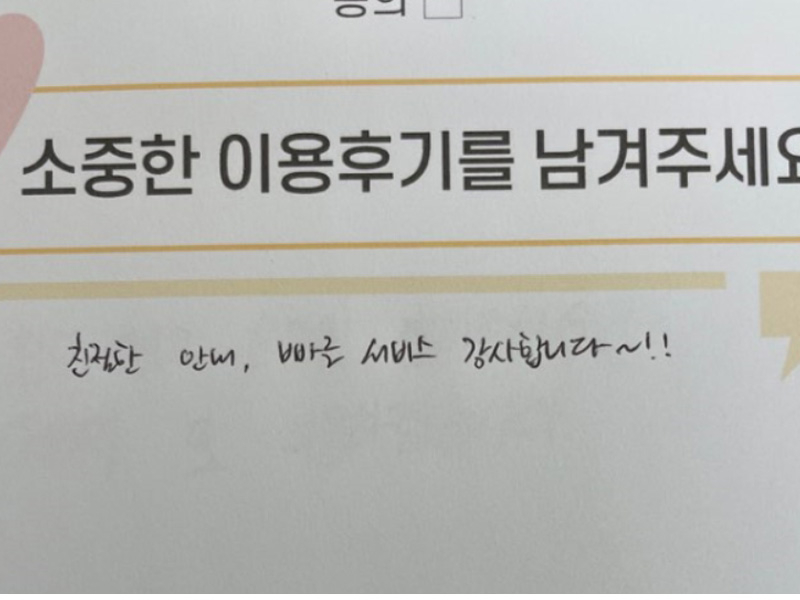 동의
소중한 이용후기를 남겨주세요
친절한 안내, 빠른 서비스 감사합니다~!!